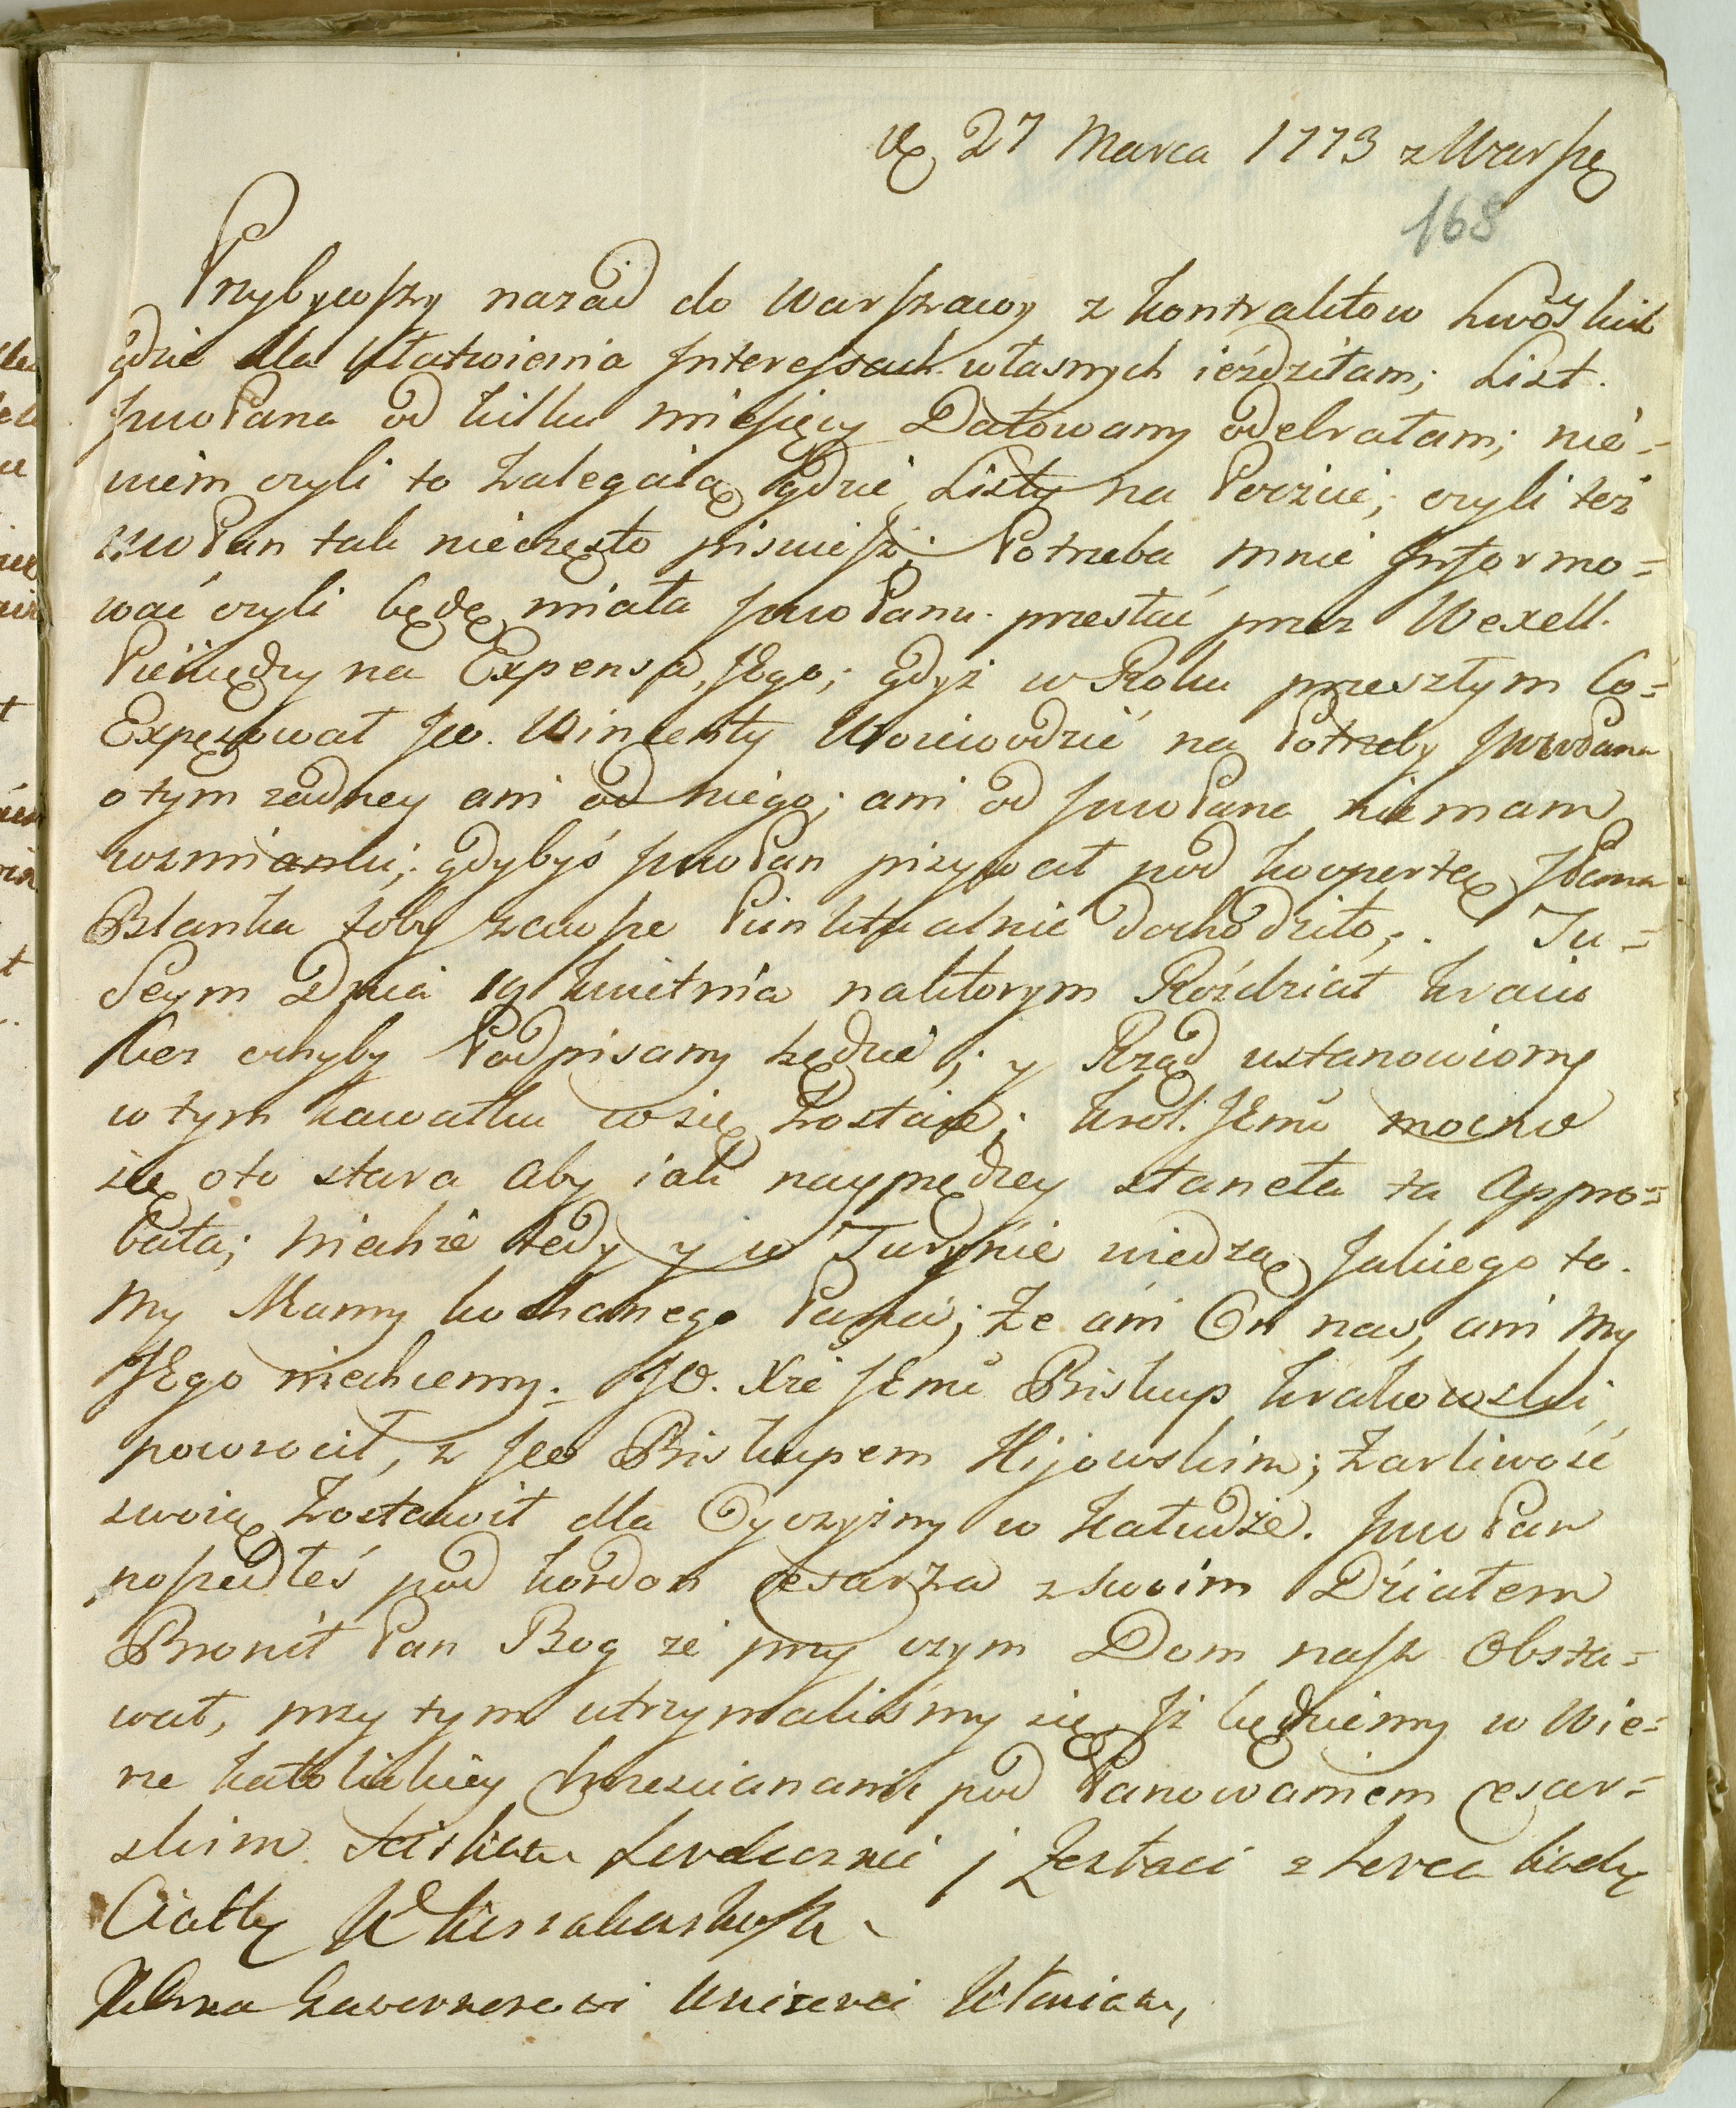 27 Marca 1773 z Warsz
168
Przybywszy nazad do Warszawy z kontraktow Lwoskich
gdzie dla Ułatwienia Interessach własnych ieździłam; List.
JmoPana od kilku miesięcy Datowany odebrałam; nie=
wiem czyli to zalegaią gdzie Listy na Poczcie; czyli też
JmoPan tak nieczęsto pisuiesz; Potrzeba mnie Informo=
wać czyli będę miała JmoPanu. przesłać przez Wexell.
Pieniędzy na Expensa, JEgo; gdyż w Roku przeszłym Co=
Expęsował Jw. Wincenty Woiewodzic na Potrzeby JmoPana
o tym żadney ani od niego; ani od JmoPana niemam
wzmianki; gdybyś JmoPan pisywał pod kopertą JPana
Blanka toby zawsze Punktualnie dochodziło;. Tu=
Seym Dnia 19 kwietnia naktorym Rozdział kraiu
bez chyby Podpisany będzie; y Rząd ustanowiony
w tym kawałku co się zostaie; krol. JEmć mocno
się oto stara aby iak nayprędzey staneła ta Appro=
bata; niechże tedy y w Turynie wiedzą Jakiego to.
My Mamy kochanego Pana; że ani On nas, ani My
JEgo niechcemy. JO. Xże JEmć Biskup krakowski
powrocił, z Jw Biskupem Kijowskim; żarliwość
swoią zostawił dla Oyczyzny w Kałudze. JmoPan
poszedłeś pod kordon Cesarza z swoim Działem
Bronił Pan Bog że przy czym Dom nasz Obsta=
wał, przy tym utrzymaliśmy się, Jż będziemy w Wie=
rze katolickiey chrzescianami pod Panowaniem Cesar=
skim sciskam serdecznie j Jestesci z serca
Ciotką